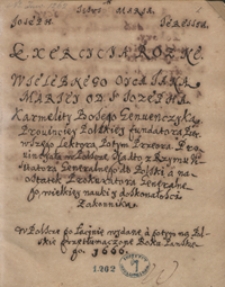 Jesus Maria
Joseph Teressa
EXERCICIA ROZNE
WIELEBNEGO OYCA JANA
MARIEY OD S. IOZEPHA
Karmelity Bosego Genueńczyka
Prouinciey Polskiey fundatora Pier
wszego Lektora Potym Przeora Pro
uincjała w Polszcze Nadto z Rzymu Wi
zitatora Generalnego do Polski a na
ostatek Prokuratora Generalne
go, wielkiey nauki y doskonałosci
Zakonnika.
w Polszcze po Łacinie wydane a potym na Pol
skie przetłumaczone Roku Pańskie
go 1666.
1202